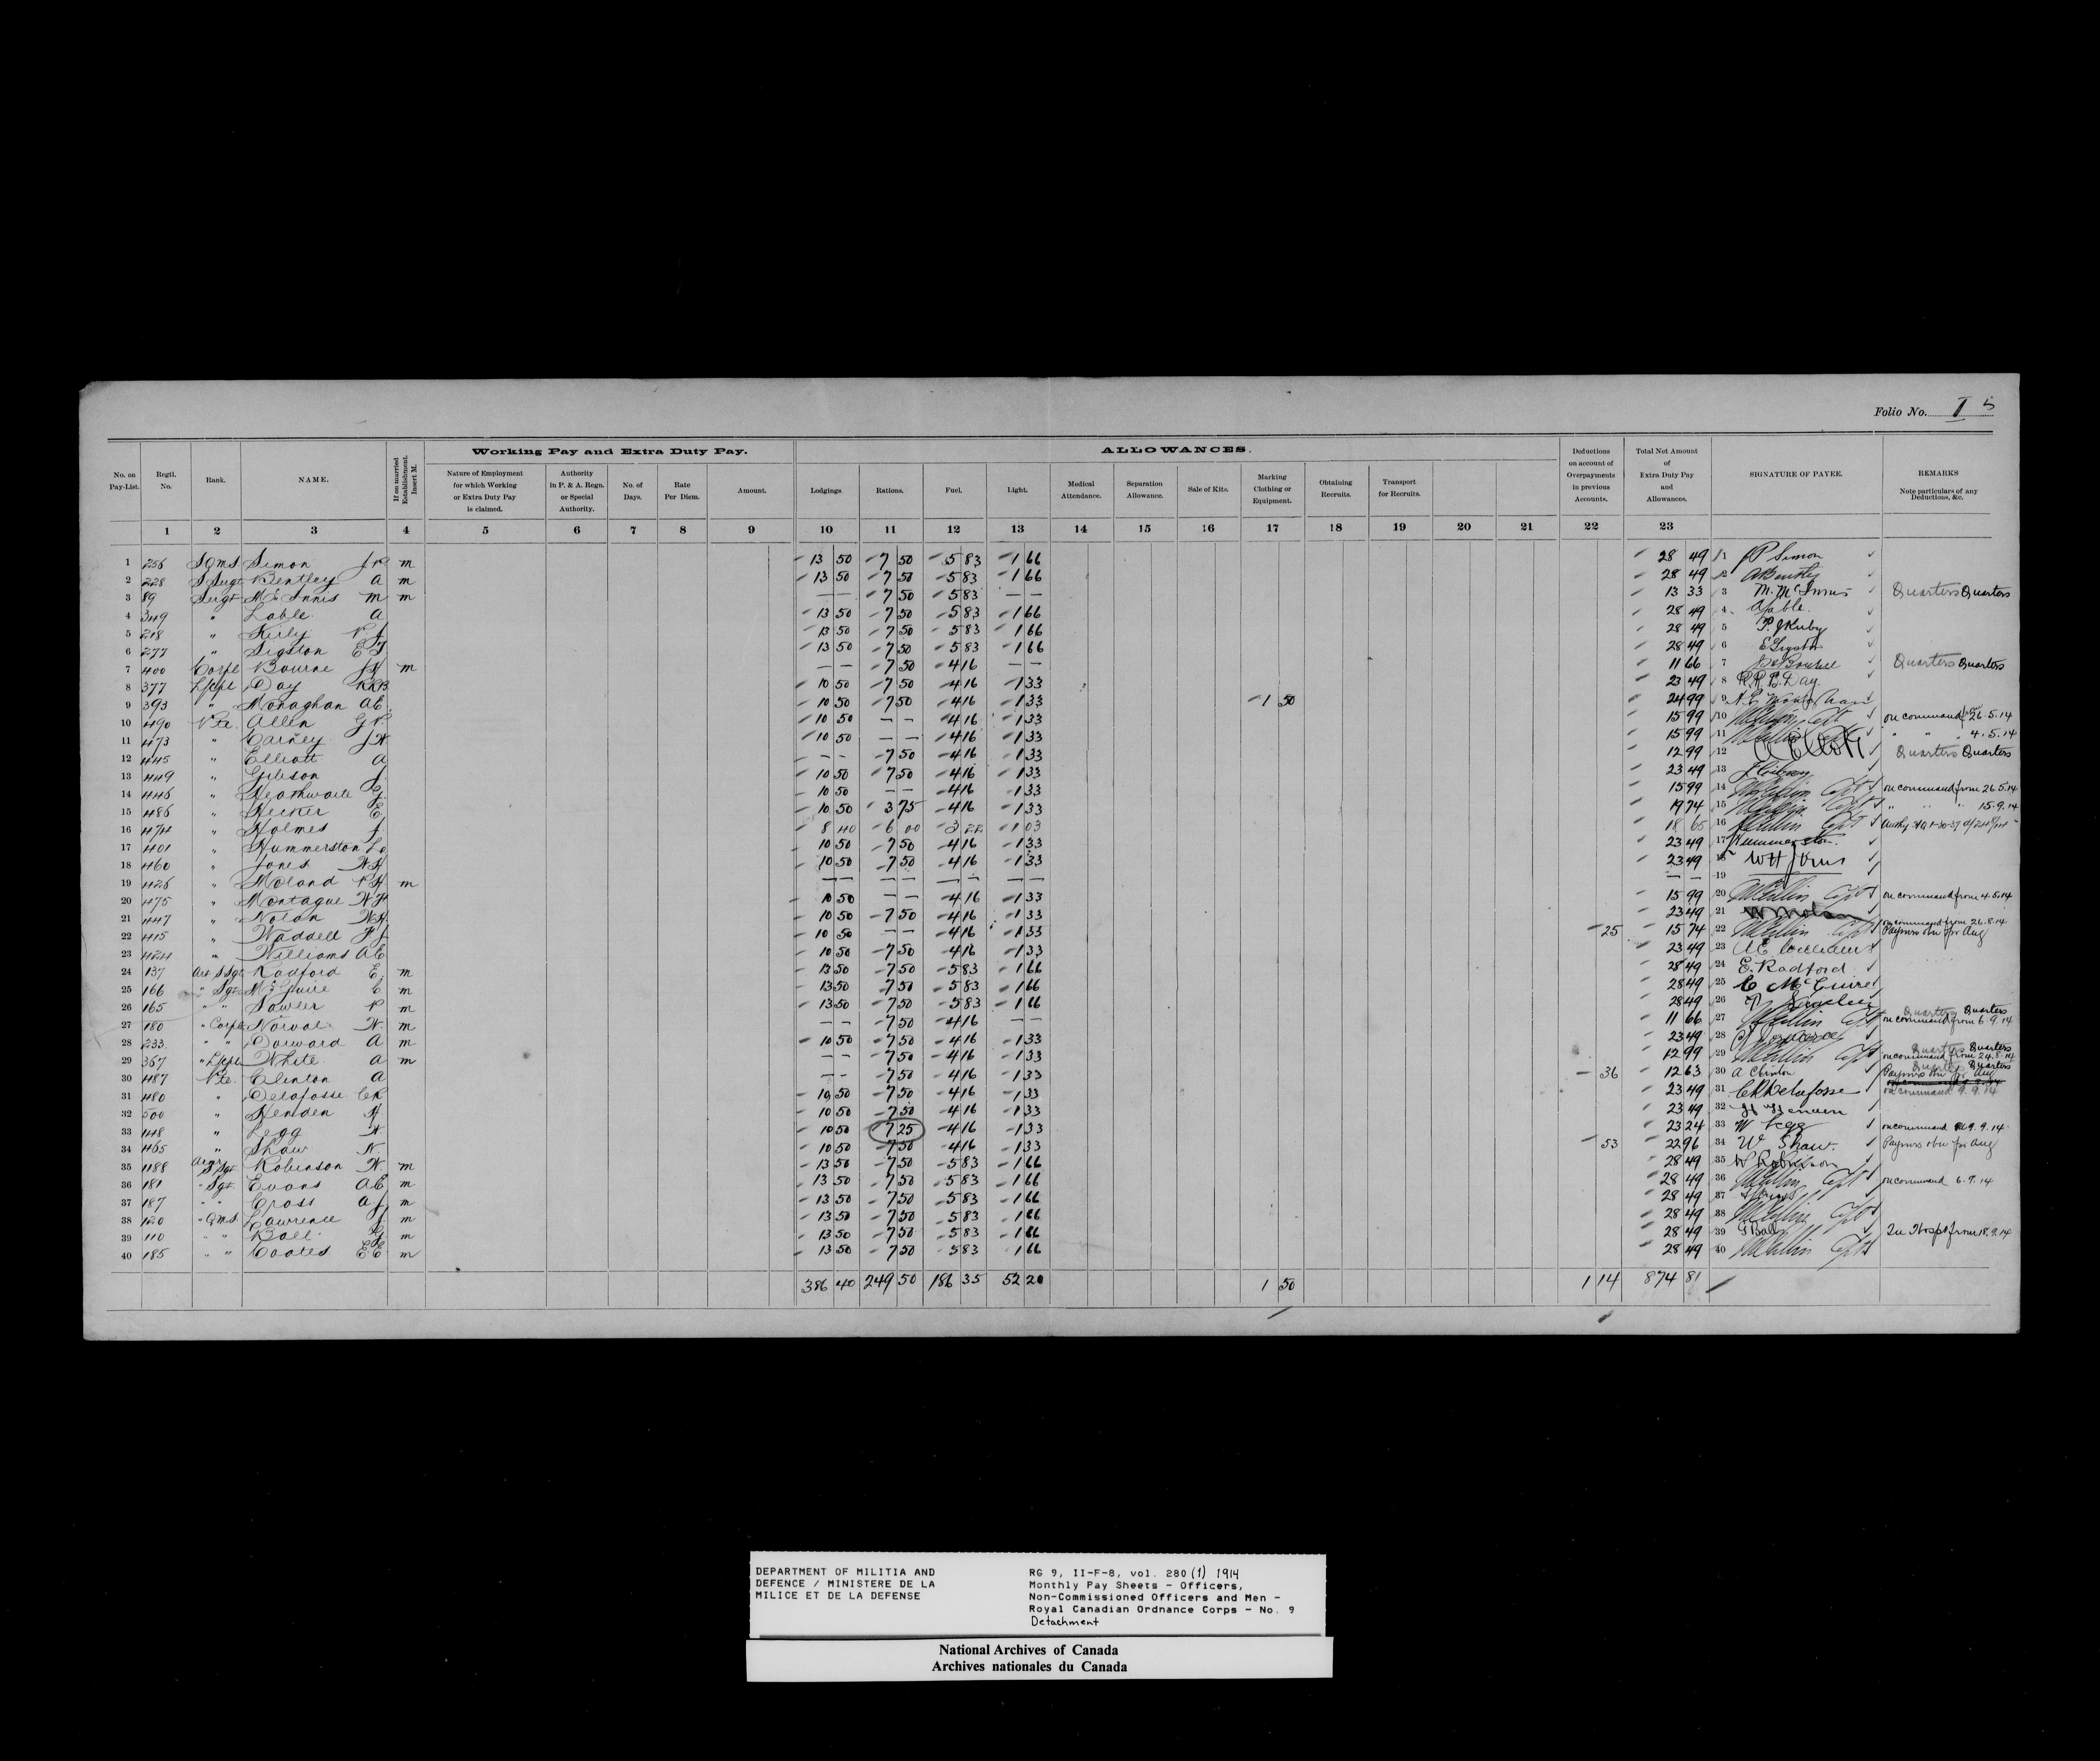 Folio No. I 5
Working Pay and Extra Duty Pay.
ALLOWANCES.
No. on Pay-List. Regtl. No. Rank. NAME. If on married Establishment. Insert M. Nature of Employment for which Working or Extra Duty Pay is claimed. Authority in P. & A. Regn. or Special Authority. No. of Days. Rate Per Diem. Amount. Lodgings Rations. Fuel. Light. Medical Attendance. Separation Allowance. Sale of Kits. Marking Clothing or Equipment. Obtaining Recruits. Transport for Recruits. Deductions on account of Overpayments in previous Accounts. Total Net Amount of Extra Duty Pay and Allowances. SIGNATURE OF PAYEE. REMARKS Note particulars of any Deductions, &c.
1 2 3 4 5 6 7 8 9 10 11 12 13 14 15 16 17 18 19 20 21 22 23
1 256 SQMS Simon J P m 13 50 7 50 5 83 1 66 28 49 1 J P Simon
2 228 S Sergt Bentley A m 13 50 7 50 5 83 1 66 28 49 2 A Bentley
3 89 Sergt McInnis M m — — 7 50 5 83 — — 13 33 3 M. McInnis Quarters Quarters
4 349 " Lable A 13 50 7 50 5 83 1 66 28 49 4 A Lable
5 218 " Kirby P J 13 50 7 50 5 83 1 66 28 49 5 P. J Kirby
6 277 " Sigston E T 13 50 7 50 5 83 1 66 28 49 6 E Sigston
7 400 Corpl Bourne m — — 7 50 4 16 — — 11 66 7 Quarters Quarters
8 377 L/Cpl Day RRB 10 50 7 50 4 16 1 33 23 49 8 R. R. B. Day
9 393 " Monaghan AE 10 50 7 50 4 16 1 33 1 50 24 99 9 A. E. Monaghan
10 490 Pte. Allen G P 10 50 — — 4 16 1 33 15 99 10 Capt on command from 26.5.14
11 473 " Carney J W 10 50 — — 4 16 1 33 15 99 11 " " " 4.5.14
12 445 " Elliott A — — 7 50 4 16 1 33 12 99 12 A Elliott Quarters Quarters
13 449 " Gibson J. 10 50 7 50 4 16 1 33 23 49 13 J Gibson
14 446 " Heathwaite G. 10 50 — — 4 16 1 33 15 99 14 Capt on command from 26.5.14
15 486 " Hecker E 10 50 3 75 4 16 1 33 19 74 15 Capt " " " 15.9.14
16 474 " Holmes J. 8 40 6 00 3 22 1 03 18 65 16 Capt
17 401 " Hummerston L 10 50 7 50 4 16 1 33 23 49 17 Hummerston
18 460 " Jones W H 10 50 7 50 4 16 1 33 23 49 18 W H Jones
19 426 " Moland P H m — — — — — — — — — — 19
20 475 " Montague W H 10 50 — — 4 16 1 33 15 99 20 Capt on command from 4.5.14
21 447 " Nolan W H 10 50 7 50 4 16 1 33 23 49 21 W Nolan
22 415 " Waddell F J 10 50 — — 4 16 1 33 25 15 74 22 Capt on command from 26.8.14 Paymrs obn for Aug
23 424 " Williams AE 10 50 7 50 4 16 1 33 23 49 23 A E Williams
24 137 S Sgt Radford E. m 13 50 7 50 5 83 1 66 28 49 24 E. Radford
25 166 " Sgt McGuire C m 13 50 7 50 5 83 1 66 28 49 25 C McGuire
26 165 " " Sawler P m 13 50 7 50 5 83 1 66 28 49 26
27 180 " Corpl Norval W. m — — 7 50 4 16 — — 11 66 27 Capt Quarters Quarters on command from 6.9.14
28 233 " " Dorward A m 10 50 7 50 4 16 1 33 23 49 28
29 367 " L/Cpl White A m — — 7 50 4 16 1 33 12 99 29 Capt Quarters Quarters on command from 24.8.14
30 487 Pte. Clinton A — — 7 50 4 16 1 33 36 12 63 30 A Clinton Quarters Quarters Paymrs obn for Aug
31 480 " Delafosse CR 10 50 7 50 4 16 1 33 23 49 31 C R Delafosse on command 9.9.14
32 500 " Henden H 10 50 7 50 4 16 1 33 23 49 32 H Henden
33 448 " Legg W 10 50 7 25 4 16 1 33 23 24 33 W Legg on command 9.9.14
34 465 " Shaw W. 10 50 7 50 4 16 1 33 53 22 96 34 W Shaw. Paymrs obn for Aug
35 488 Armr S Sgt Robinson W. m 13 50 7 50 5 83 1 66 28 49 35 W Robinson
36 181 " Sgt. Evans AE m 13 50 7 50 5 83 1 66 28 49 36 Capt on command 6.9.14
37 187 " " Cross A J m 13 50 7 50 5 83 1 66 28 49 37
38 120 " QMS Lawrence J m 13 50 7 50 5 83 1 66 28 49 38 Capt
39 110 " " Ball G m 13 50 7 50 5 83 1 66 28 49 39 G Ball In Hospt from 18.9.14
40 185 " " Coates E E m 13 50 7 50 5 83 1 66 28 49 40 Capt
386 40 249 50 186 35 52 20 1 50 1 14 874 81
DEPARTMENT OF MILITIA AND
DEFENCE / MINISTERE DE LA
MILICE ET DE LA DEFENSE
RG 9, II-F-8, vol. 280 (1) 1914
Monthly Pay Sheets - Officers,
Non-Commissioned Officers and Men -
Royal Canadian Ordnance Corps - No. 9
Detachment
National Archives of Canada
Archives nationales du Canada